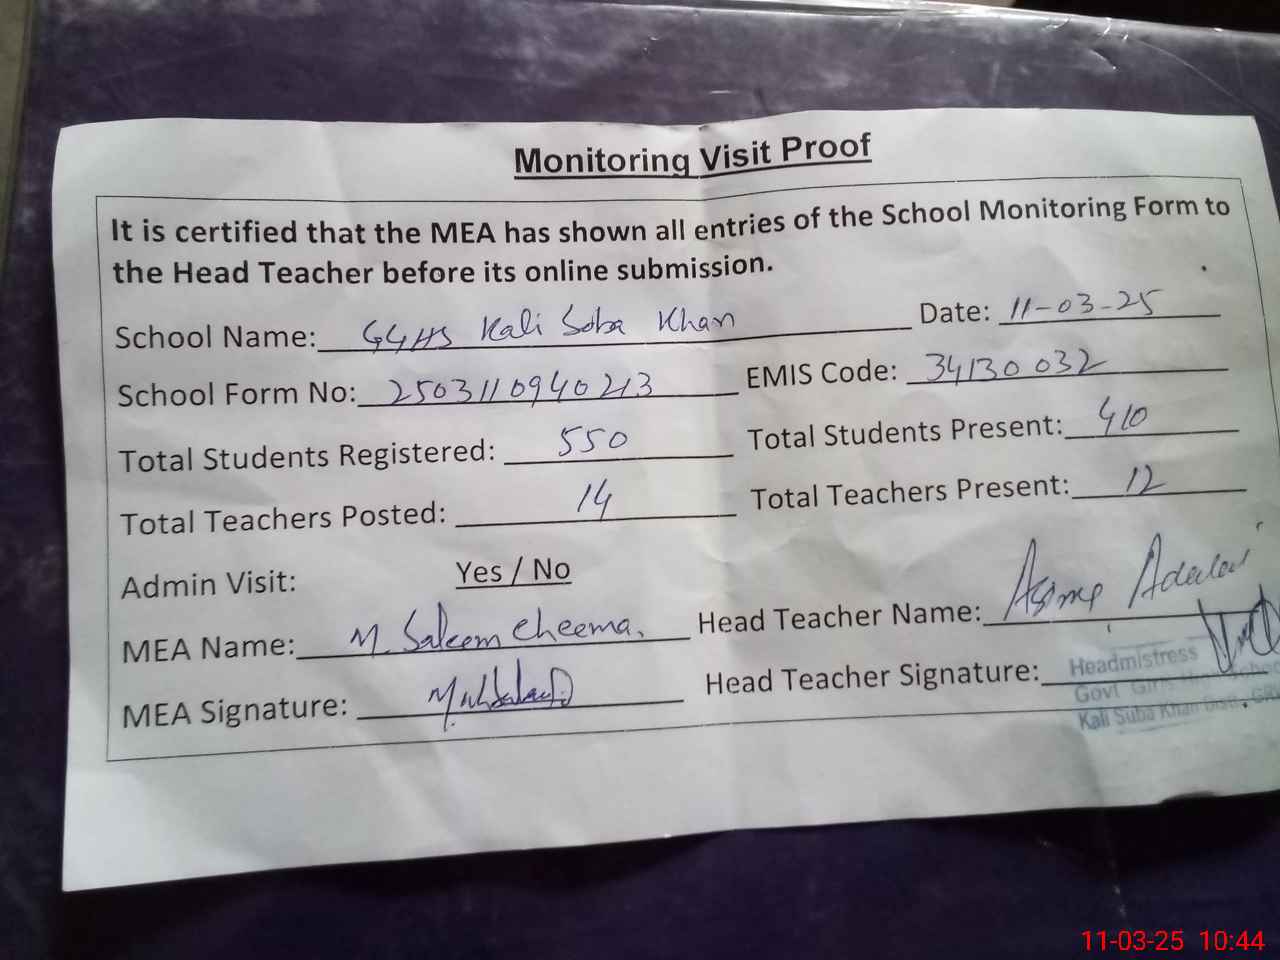 Monitoring Visit Proof
It is certified that the MEA has shown all entries of the School Monitoring Form to
the Head Teacher before its online submission.
School Name: GGHS Kali Soba Khan Date: 11-03-25
School Form No: 2503110940213 EMIS Code: 34130032
Total Students Registered: 550 Total Students Present: 410
Total Teachers Posted: 14 Total Teachers Present: 12
Admin Visit: Yes / No
MEA Name: M. Saleem Cheema. Head Teacher Name: Asma
MEA Signature: Head Teacher Signature:
Headmistress
Govt Girls High
Kali Suba Khan
11-03-25 10:44